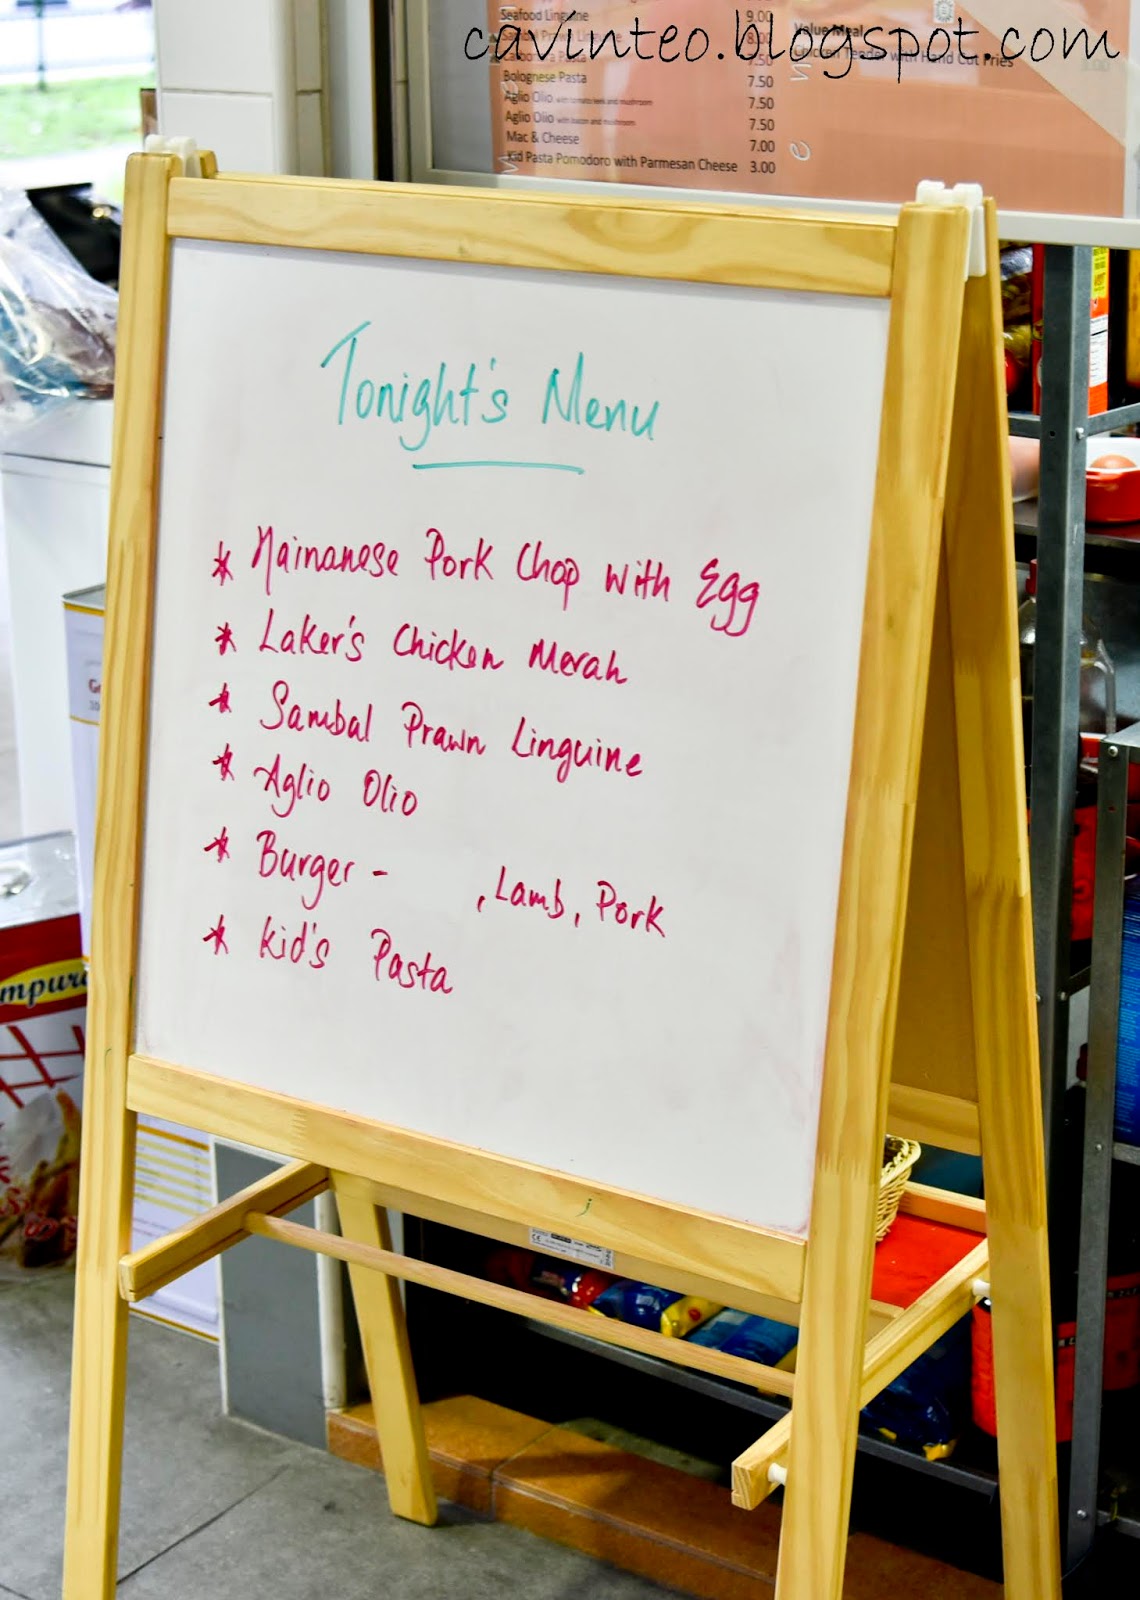 cavinteo.blogspot.com
Seafood Linguine 9.00
Bolognese Pasta 7.50
Aglio Olio with tomato leek and mushroom 7.50
Aglio Olio with bacon and mushroom 7.50
Mac & Cheese 7.00
Kid Pasta Pomodoro with Parmesan Cheese 3.00
Value Meal
Chicken Tender with Hand Cut Fries
Tonight's Menu
* Hainanese Pork Chop with Egg
* Laker's Chicken Merah
* Sambal Prawn Linguine
* Aglio Olio
* Burger - , Lamb, Pork
* Kid's Pasta